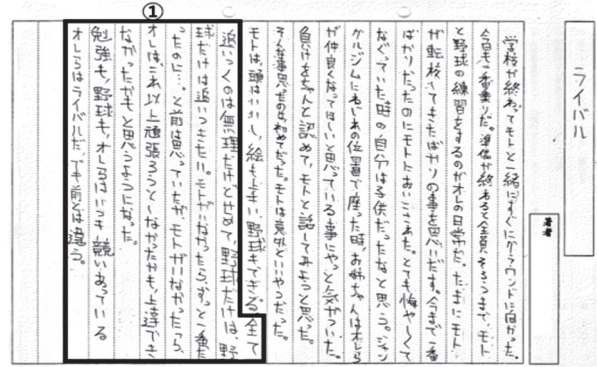 ライバル
著者
学校が終わってモトと一緒にすぐにグラウンドに向かった。
今日も一番乗りだ。準備が終わると全員そろうまで、モト
と野球の練習をするのがオレの日常だ。たまにモト
が転校してきたばかりの事を思いだす。今まで一番
ばかりだったのにモトにおいこされた。とても悔やしくて
なぐっていた時の自分は子供だったなと思う。ジャン
グルジムに の位置で座った時、お姉ちゃんはオレら
が仲良くなってほしいと思っている事にやっと気がついた。
負けをちゃんと認めて、モトと話してみようと思った。
そんな事思ったのは初めてだった。モトは意外といいやつだった。
モトは、頭はいいし、絵も上手い、野球もできる。全て
追いつくのは無理だけどせめて、野球だけは、野
球だけは追いつきたい。モトがいなかったら、ずっと一番だ
ったのに…。と前は思っていたが、モトがいなかったら、
オレは、これ以上頑張ろうとしなかったかも、上達でき
なかったかもと思うようになった。
勉強も、野球も、オレらはいつも競いあっている
オレらはライバルだ、でも前とは違う。
①